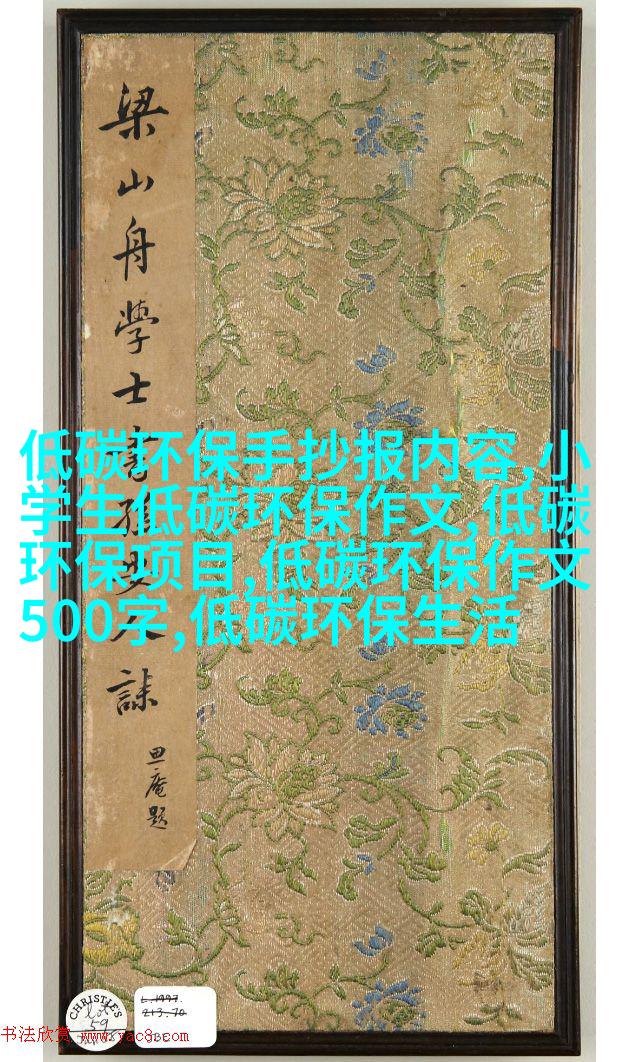 梁山舟學士書孫夫人誄
思庵題
低碳环保手抄报内容,小
学生低碳环保作文,低碳
环保项目,低碳环保作文
500字,低碳环保生活
CHRISTIE'S
Lot
59
L.1997.
213.70
书法欣赏 www.yac8.com